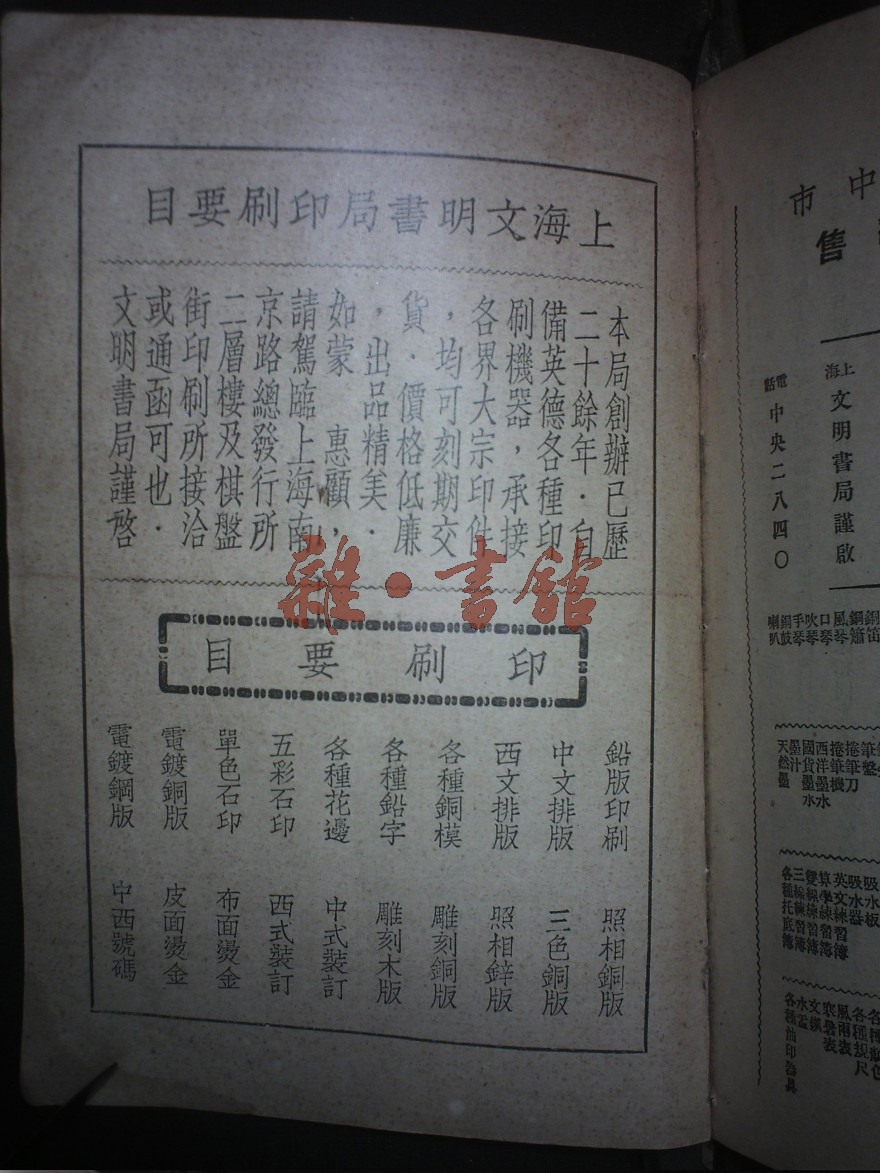 上海文明書局印刷要目
本局創辦已歷
二十餘年．自
備英德各種印
刷機器，承接
各界大宗印件
，均可刻期交
貨．價格低廉
，出品精美．
如蒙　惠顧，
請駕臨上海南
京路總發行所
二層樓及棋盤
街印刷所接洽
或通函可也．
文明書局謹啓
雜·書館
印刷要目
鉛版印刷
中文排版
西文排版
各種銅模
各種鉛字
各種花邊
五彩石印
單色石印
電鍍銅版
電鍍鋼版
照相銅版
三色銅版
照相鋅版
雕刻銅版
雕刻木版
中式裝訂
西式裝訂
布面燙金
皮面燙金
中西號碼
中
市
售
上海文明書局謹啟
電話中央二八四〇
銅笛
銅簫
風琴
口琴
吹琴
手琴
銅鼓
喇叭
筆盤
捲筆刀
捲筆機
西洋墨水
國貨墨水
墨汁
天然墨
吸水板
吸水器
英文練習簿
算學練習簿
雙線練習簿
三線練習簿
各種托底簿
各種規尺
風雨表
寒暑表
文鎮
水盂
各種油印器具